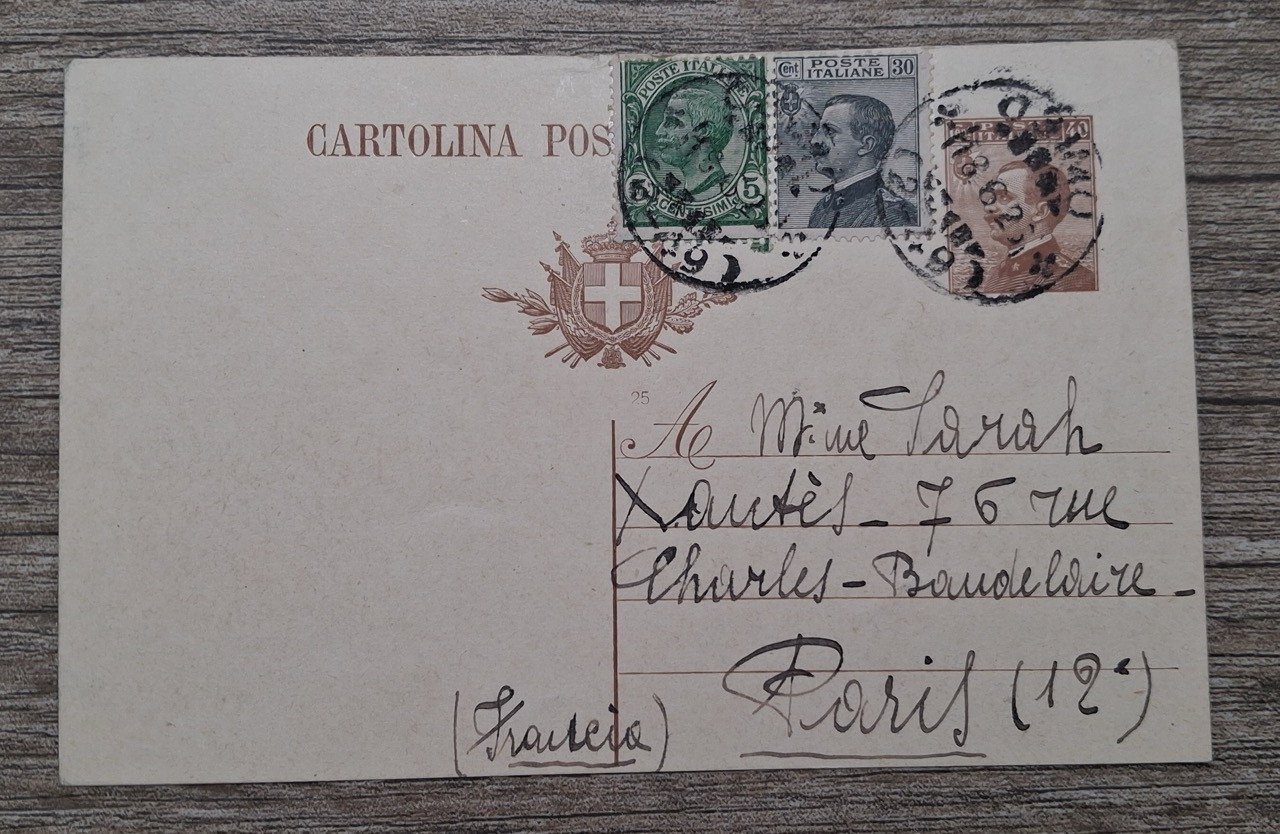 CARTOLINA POS
POSTE ITALIANE
5 CENTESIMI 5
Cent POSTE 30
ITALIANE
40
25
A Mme Sarah
Xantès - 76 rue
Charles-Baudelaire -
Paris (12e)
(Francia)